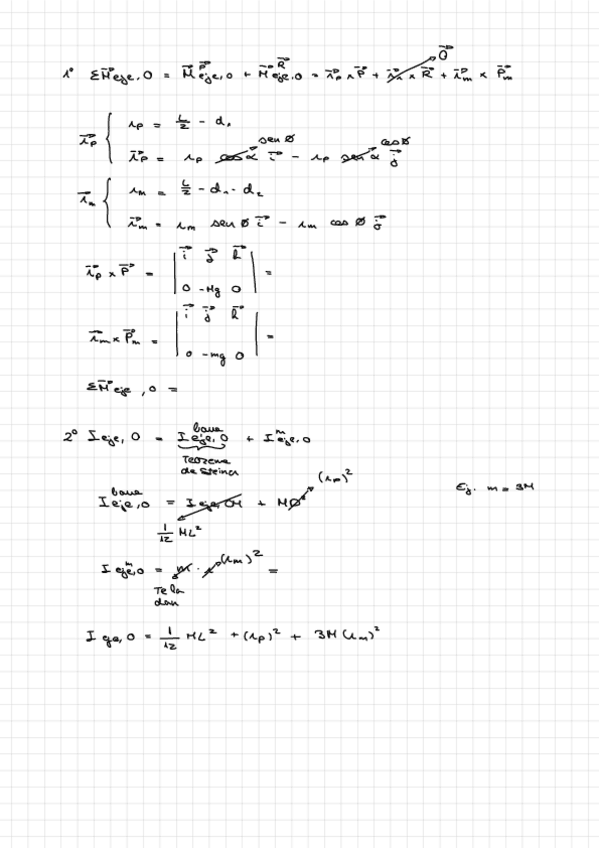 1º ΣM⃗eje,O = M⃗^P⃗ eje,O + M⃗^R⃗ eje,O = r⃗p × P⃗ + r⃗r × R⃗ + r⃗m × P⃗m
O⃗
r⃗p { rp = L/2 - d1
sen Ø cos Ø
r⃗p = rp cos α i⃗ - rp sen α j⃗
r⃗m { rm = L/2 - d1 - d2
r⃗m = rm sen Ø i⃗ - rm cos Ø j⃗
r⃗p × P⃗ = | i⃗ j⃗ k⃗ | =
0 -Mg 0
r⃗m × P⃗m = | i⃗ j⃗ k⃗ | =
0 -mg 0
ΣM⃗eje,O =
2º Ieje,O = I^barra eje,O + I^m eje,O
Teorema
de Steiner
(rp)²
I^barra eje,O = Ieje,CM + MD² Ej. m = 3M
1/12 ML²
I^m eje,O = m · r² (rm)² =
Te la
dan
Ieje,O = 1/12 ML² + (rp)² + 3M(rm)²